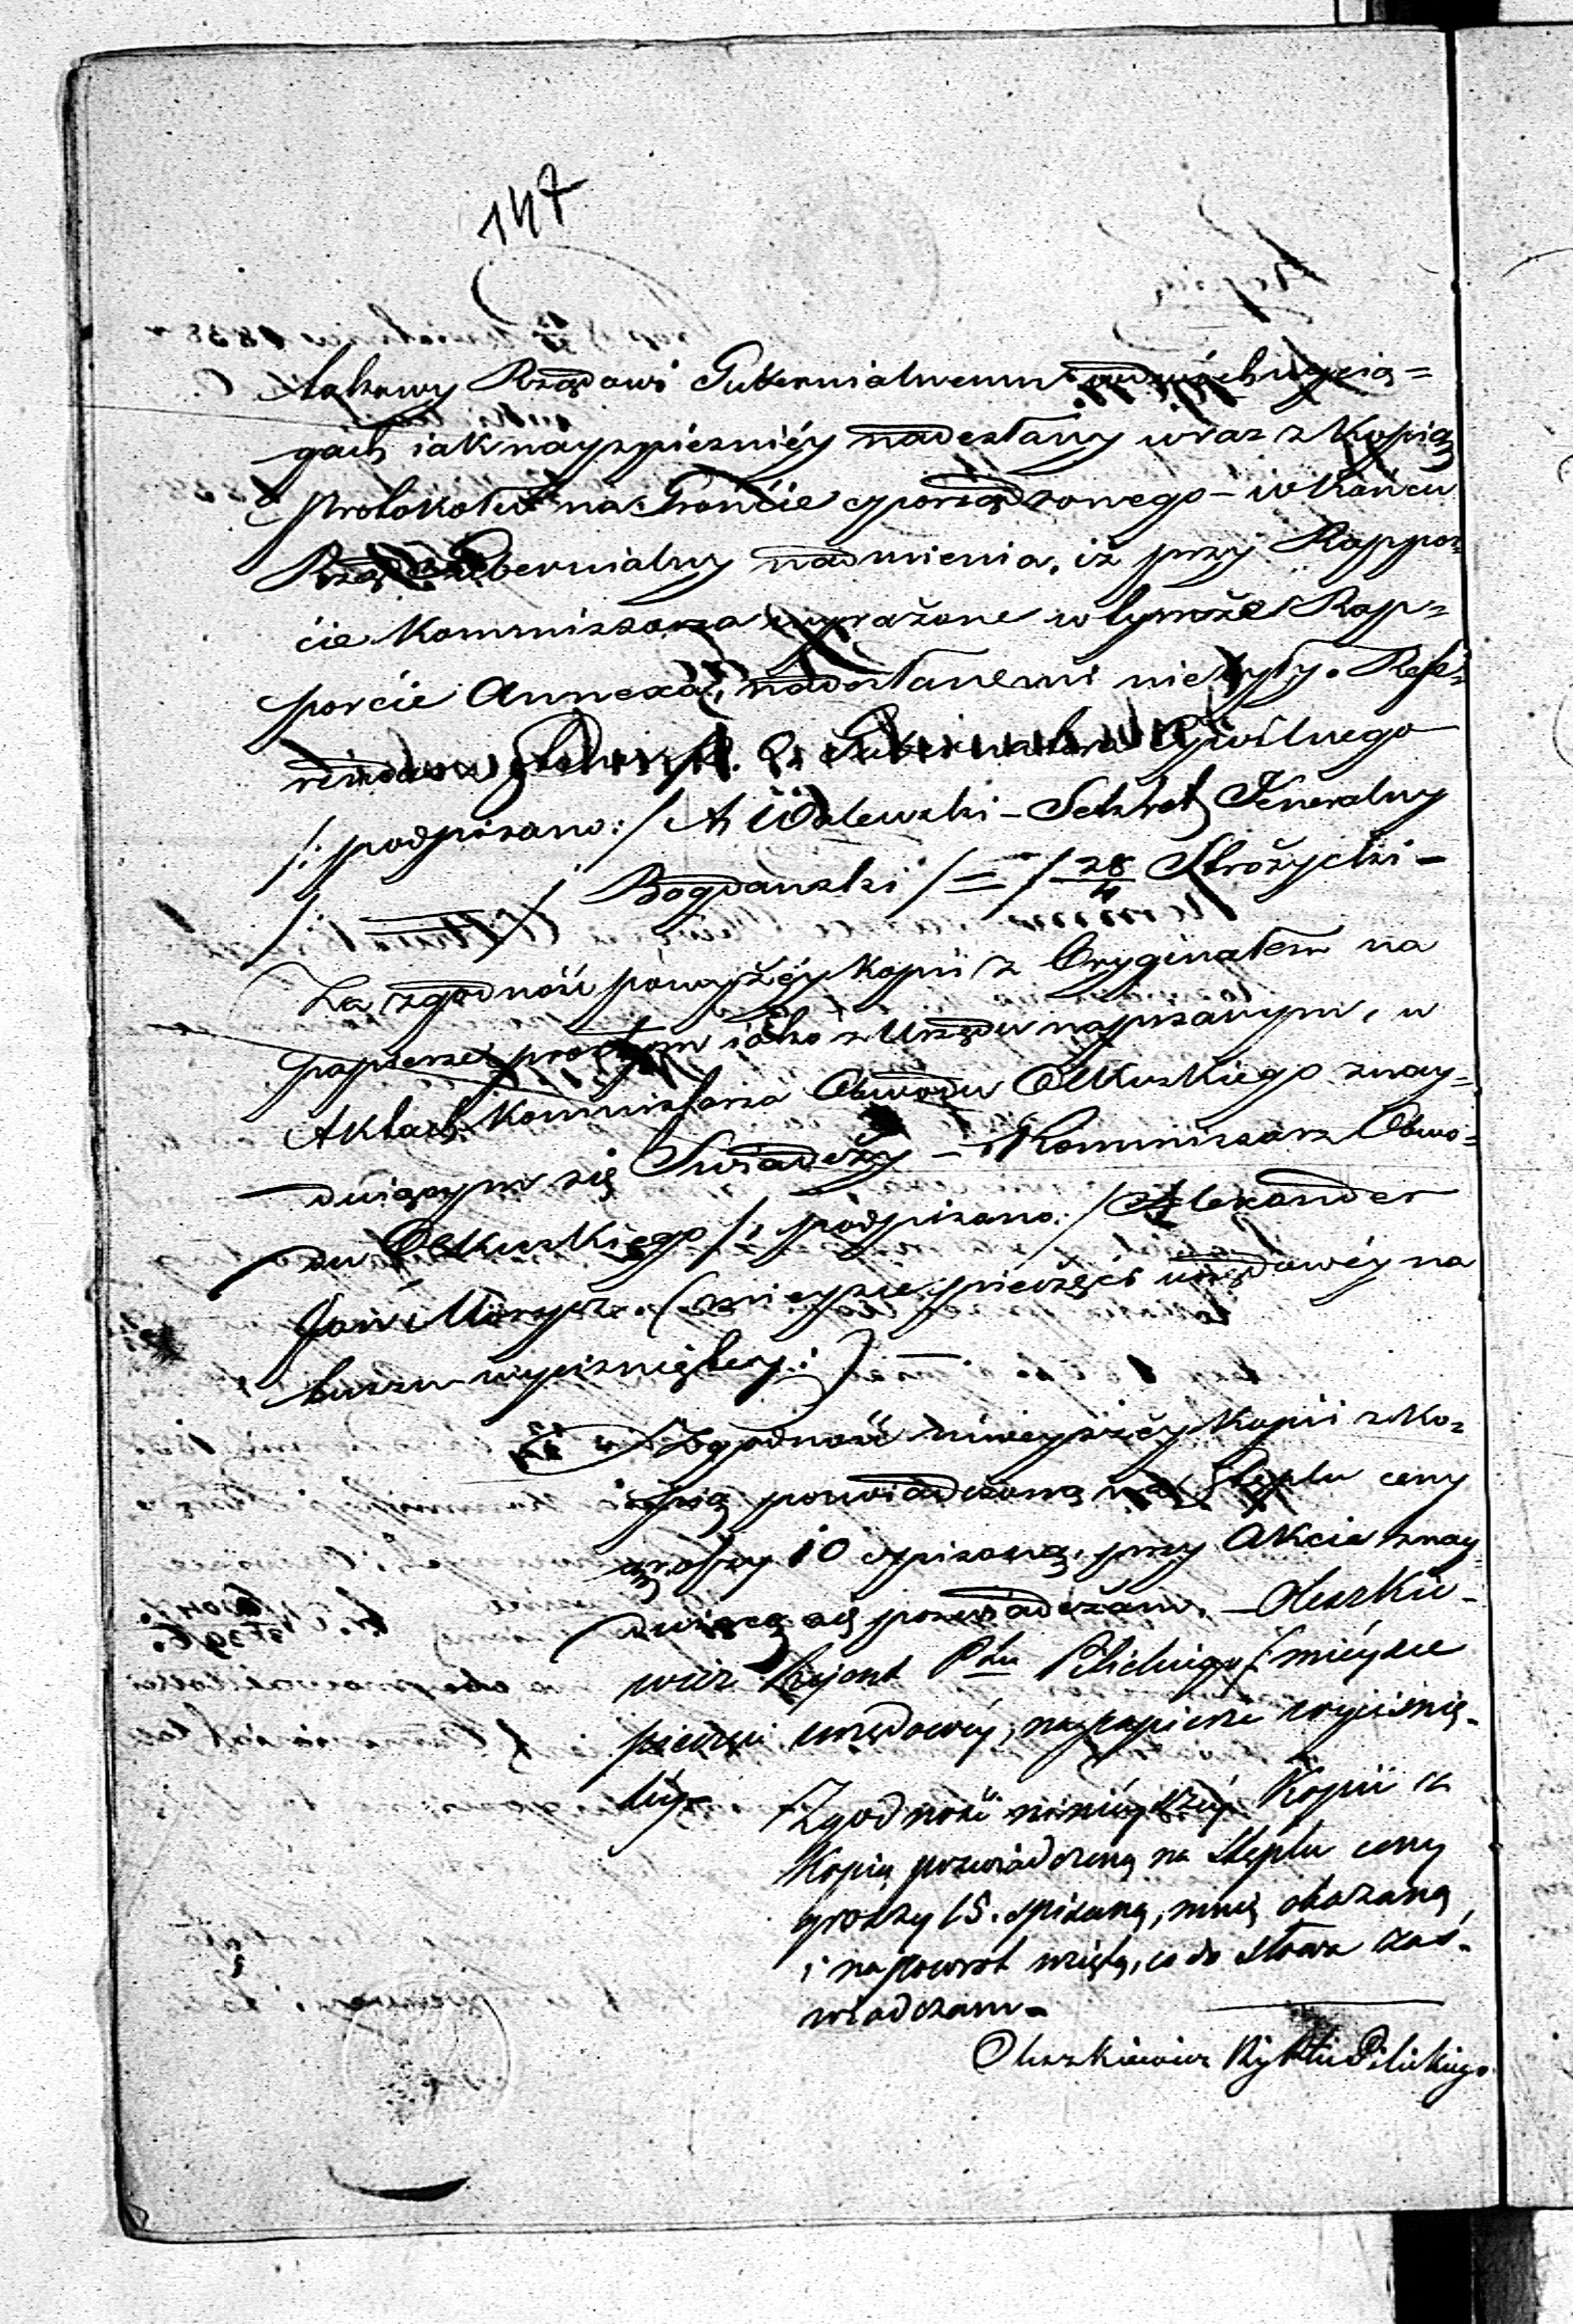 147
takowy Rządowi Gubernialnemu w dwóch wycią=
gach iak nayspieszniéy nadesłany wraz z Kopią
protokołu na Gróncie sporządzonego – w końcu
Rząd Gubernialny nadmienia, iż przy Rappor=
cie Kommissarza wyrażone w tymże Rap=
porcie Annexa, nadesłanemi nie były. Refe=
rendarz Stanu p. o. Gubernatora Cywilnego
/: podpisano :/ A Walewski – Sekret Jeneralny
/: :/ Bogdański /=/ 28/4 Strożycki –
Za zgodność powyższéy Kopii z Oryginałem na
papierze prostym iako z Urzędu napisanym, w
Aktach Kommissarza Obwodu Olkuskiego znay=
duiącym się Swiadczy – Kommissarz Obwo=
du Olkuskiego /: podpisano :/ Alexander
Jan Moryc. (: mieysce pieczęci urzędowéy na
tuszu wyciśniętey :) —
Zgodność ninieyszéy Kopii z Ko=
pią poswiadczoną na Stęplu ceny
groszy 10 spisaną, przy Akcie znay=
duiącą się poswiadczam. – Oleszkie=
wicz Rejent Ptu Pilickiego (: mieysce
pieczęci urzędowéy, na papierze wyciśnię=
téy.
Zgodność ninieyszéy Kopii z
Kopią poswiadczoną na Stęplu ceny
groszy 15. spisaną, mnie okazaną
i na powrot wziętą, co do słowa zaś=
wiadczam –
Oleszkiewicz Rjt Ptu Pilickiego